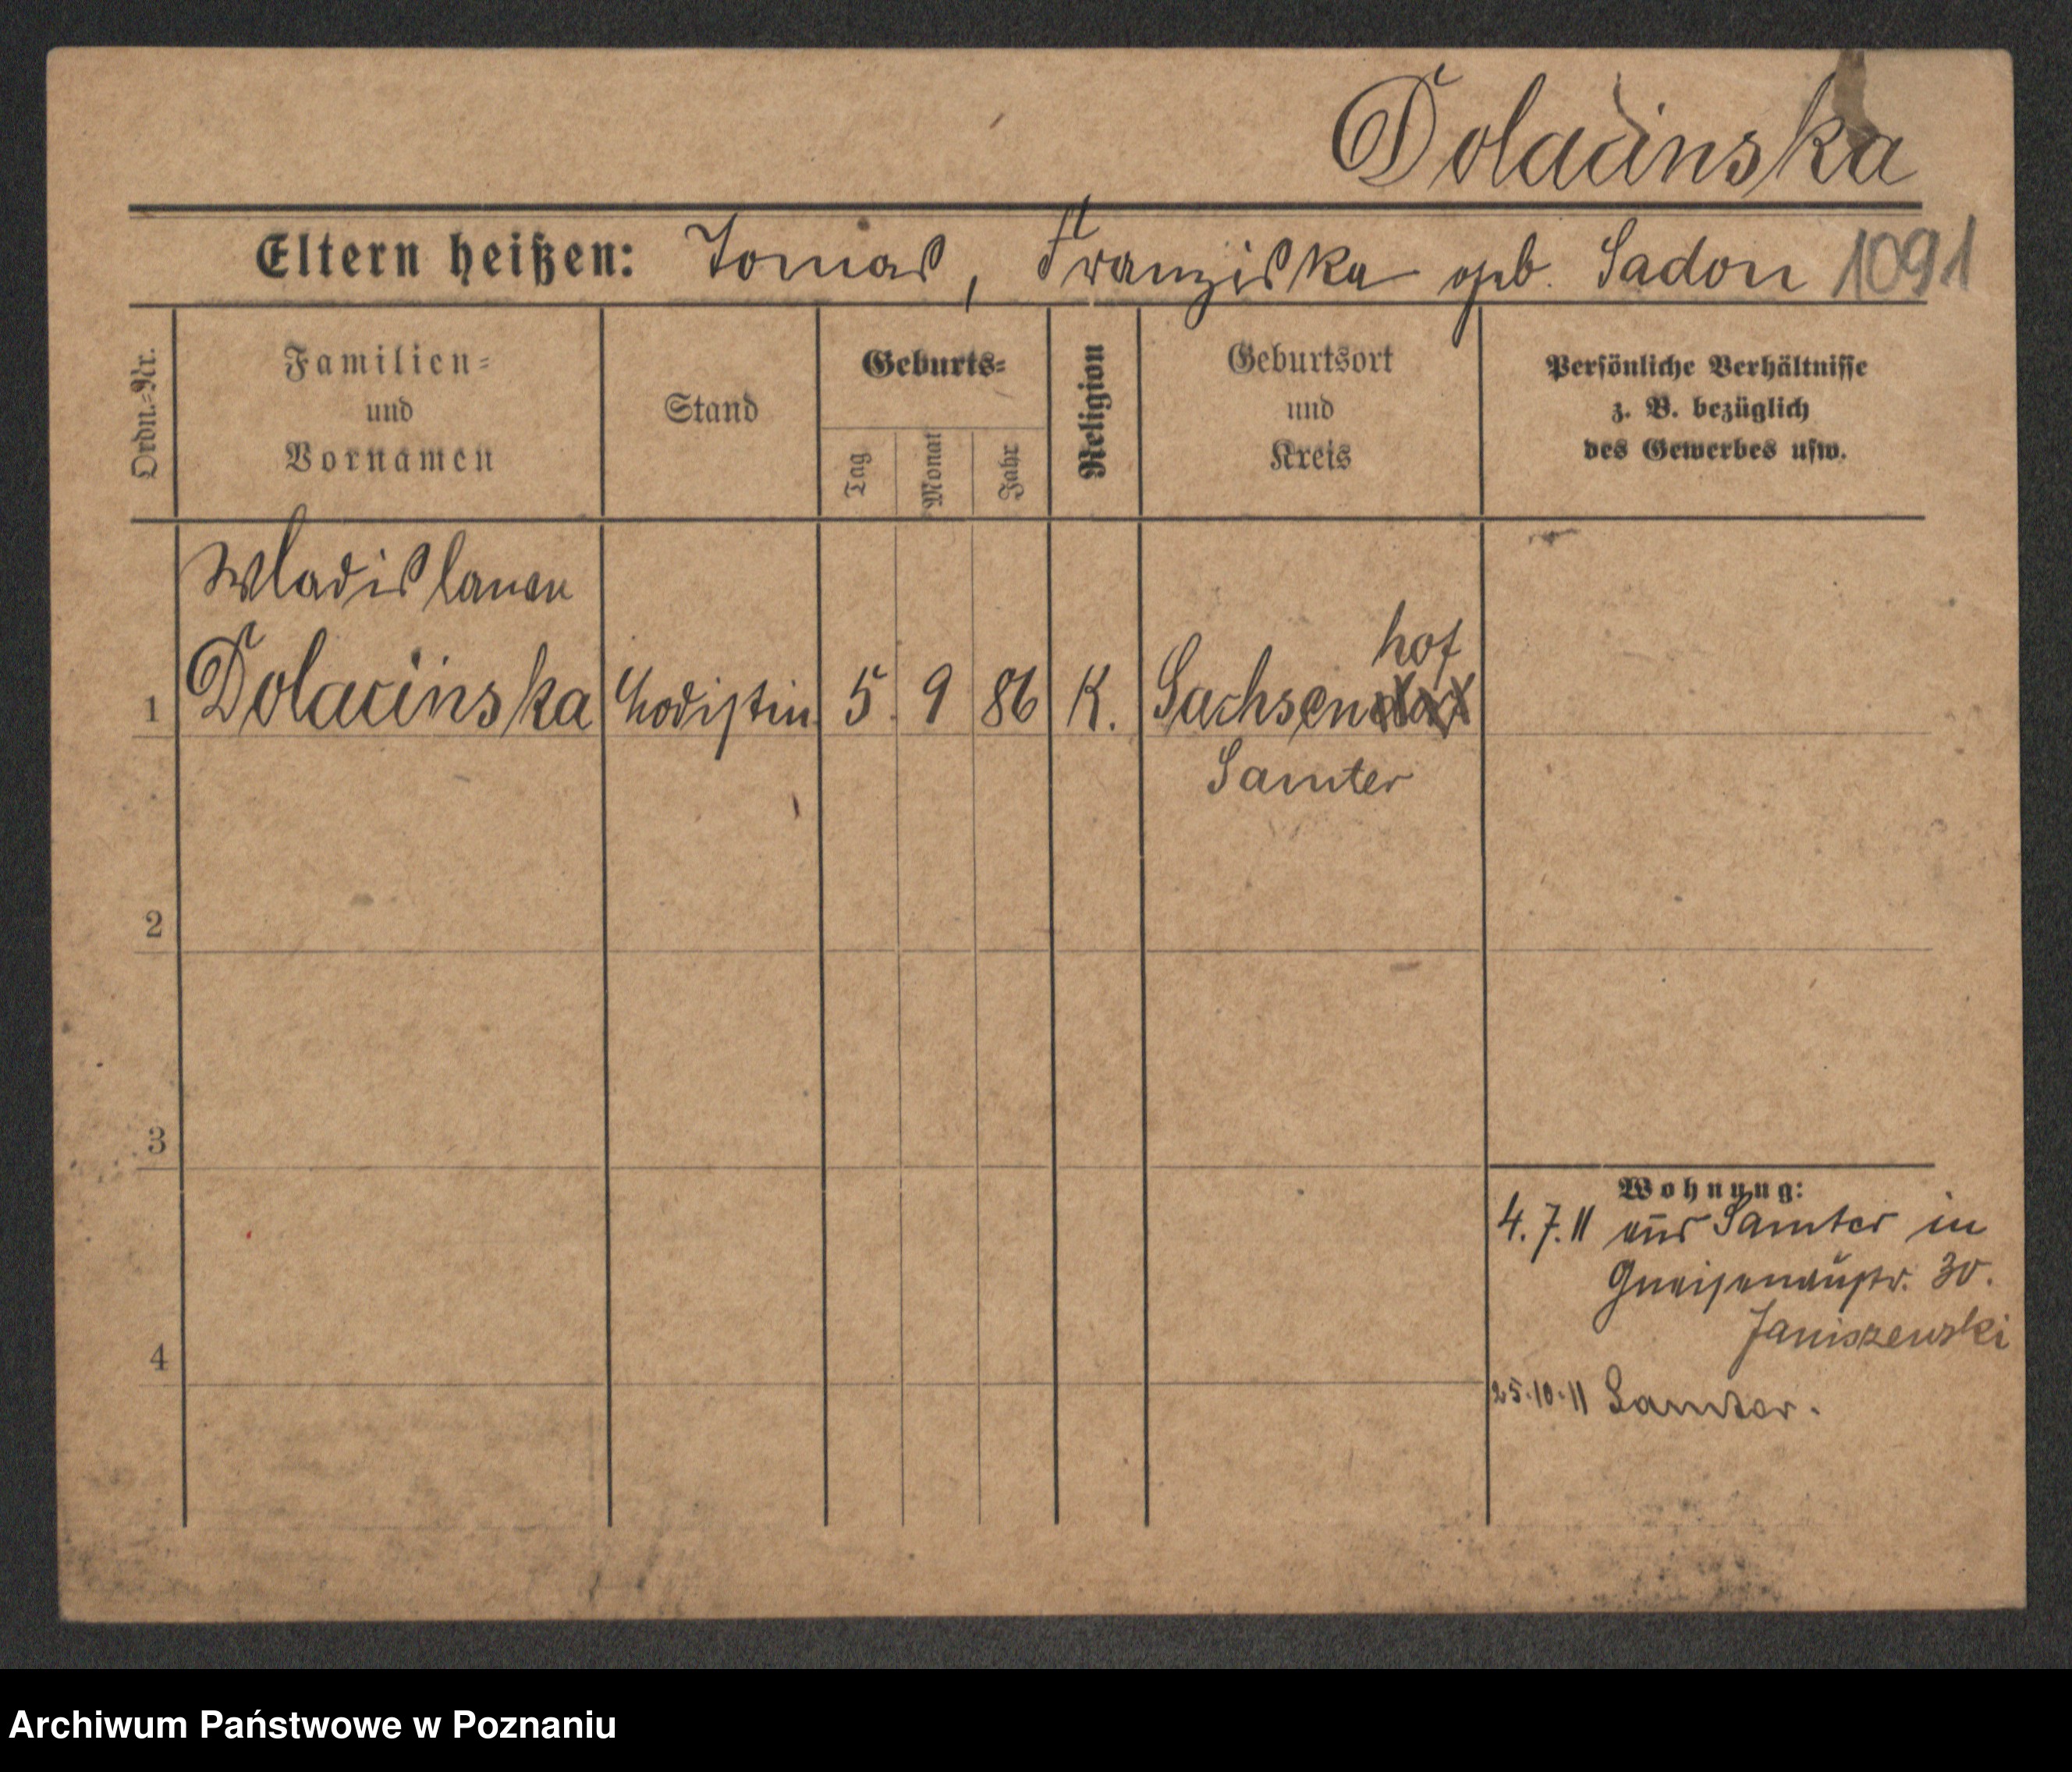 Dolacinska
Eltern heißen: Tomas, Franziska geb. Sadon 1091
Ordn.-Nr.
Familien-
und
Vornamen
Stand
Geburts-
Tag
Monat
Jahr
Religion
Geburtsort
und
Kreis
Persönliche Verhältnisse
z. B. bezüglich
des Gewerbes usw.
Wladislawa
hof
1 Dolacinska Modistin 5. 9 86 K. Sachsendorf
Samter
2
3
Wohnung:
4.7.11 aus Samter in
Gneisenaustr. 30.
Janiszewski
4
25.10.11 Samter.
Archiwum Państwowe w Poznaniu